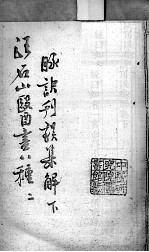 脉訣刋誤集解 下
汪石山醫書八種 二